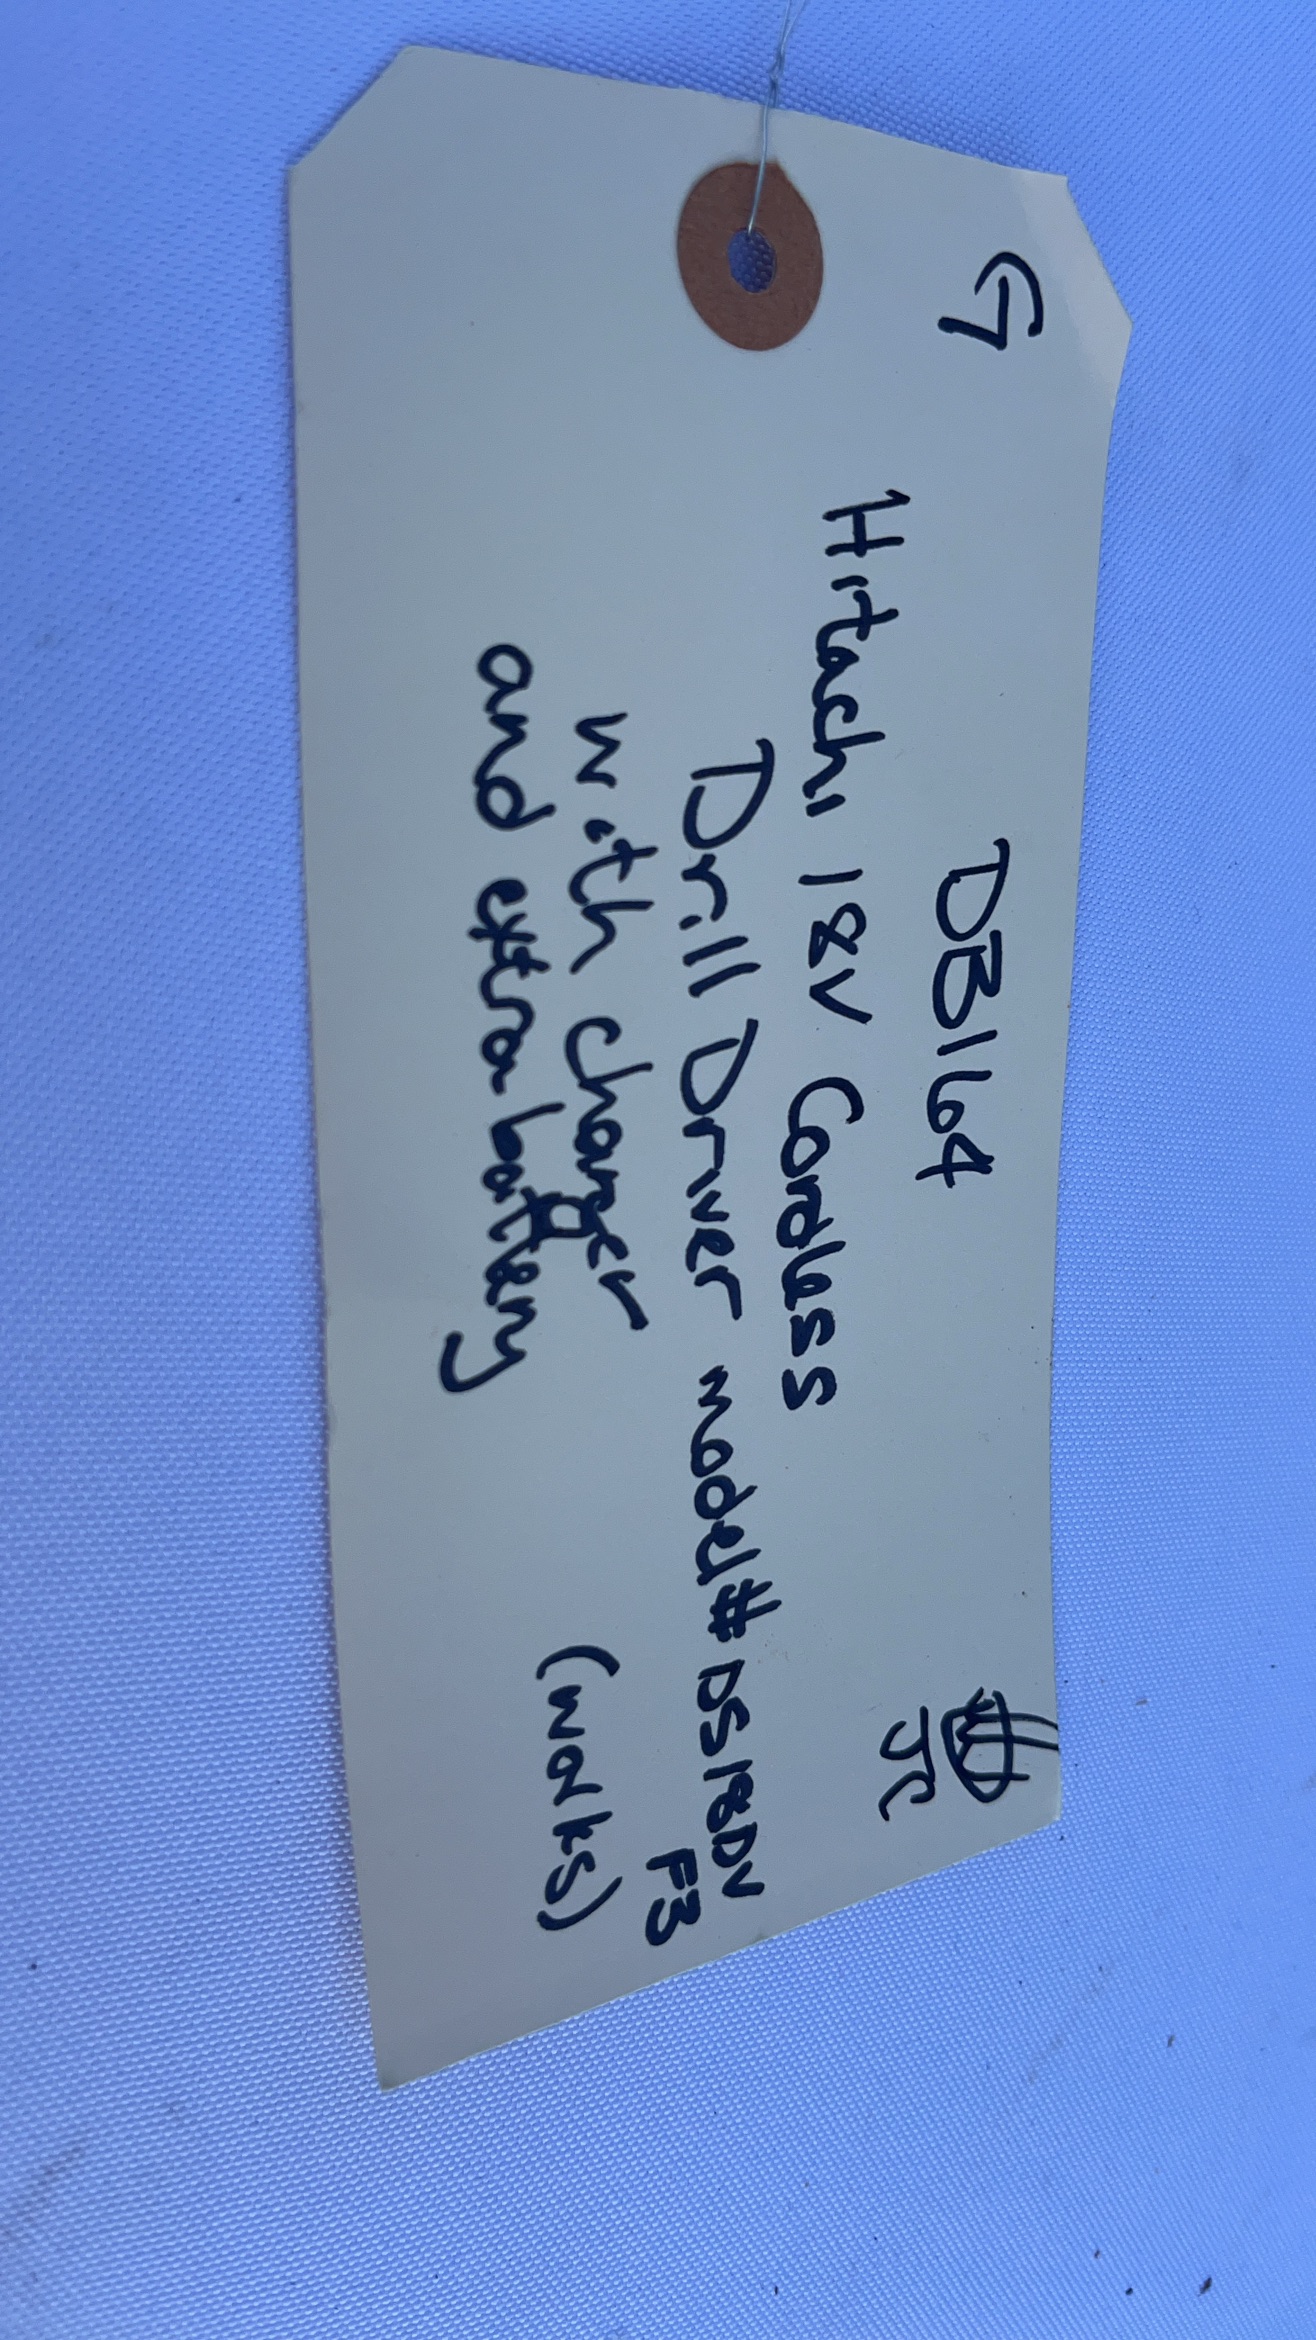 G
DB164
JC
Hitachi 18V Cordless
Drill Driver model# DS18DV
F3
with charger
and extra battery
(works)